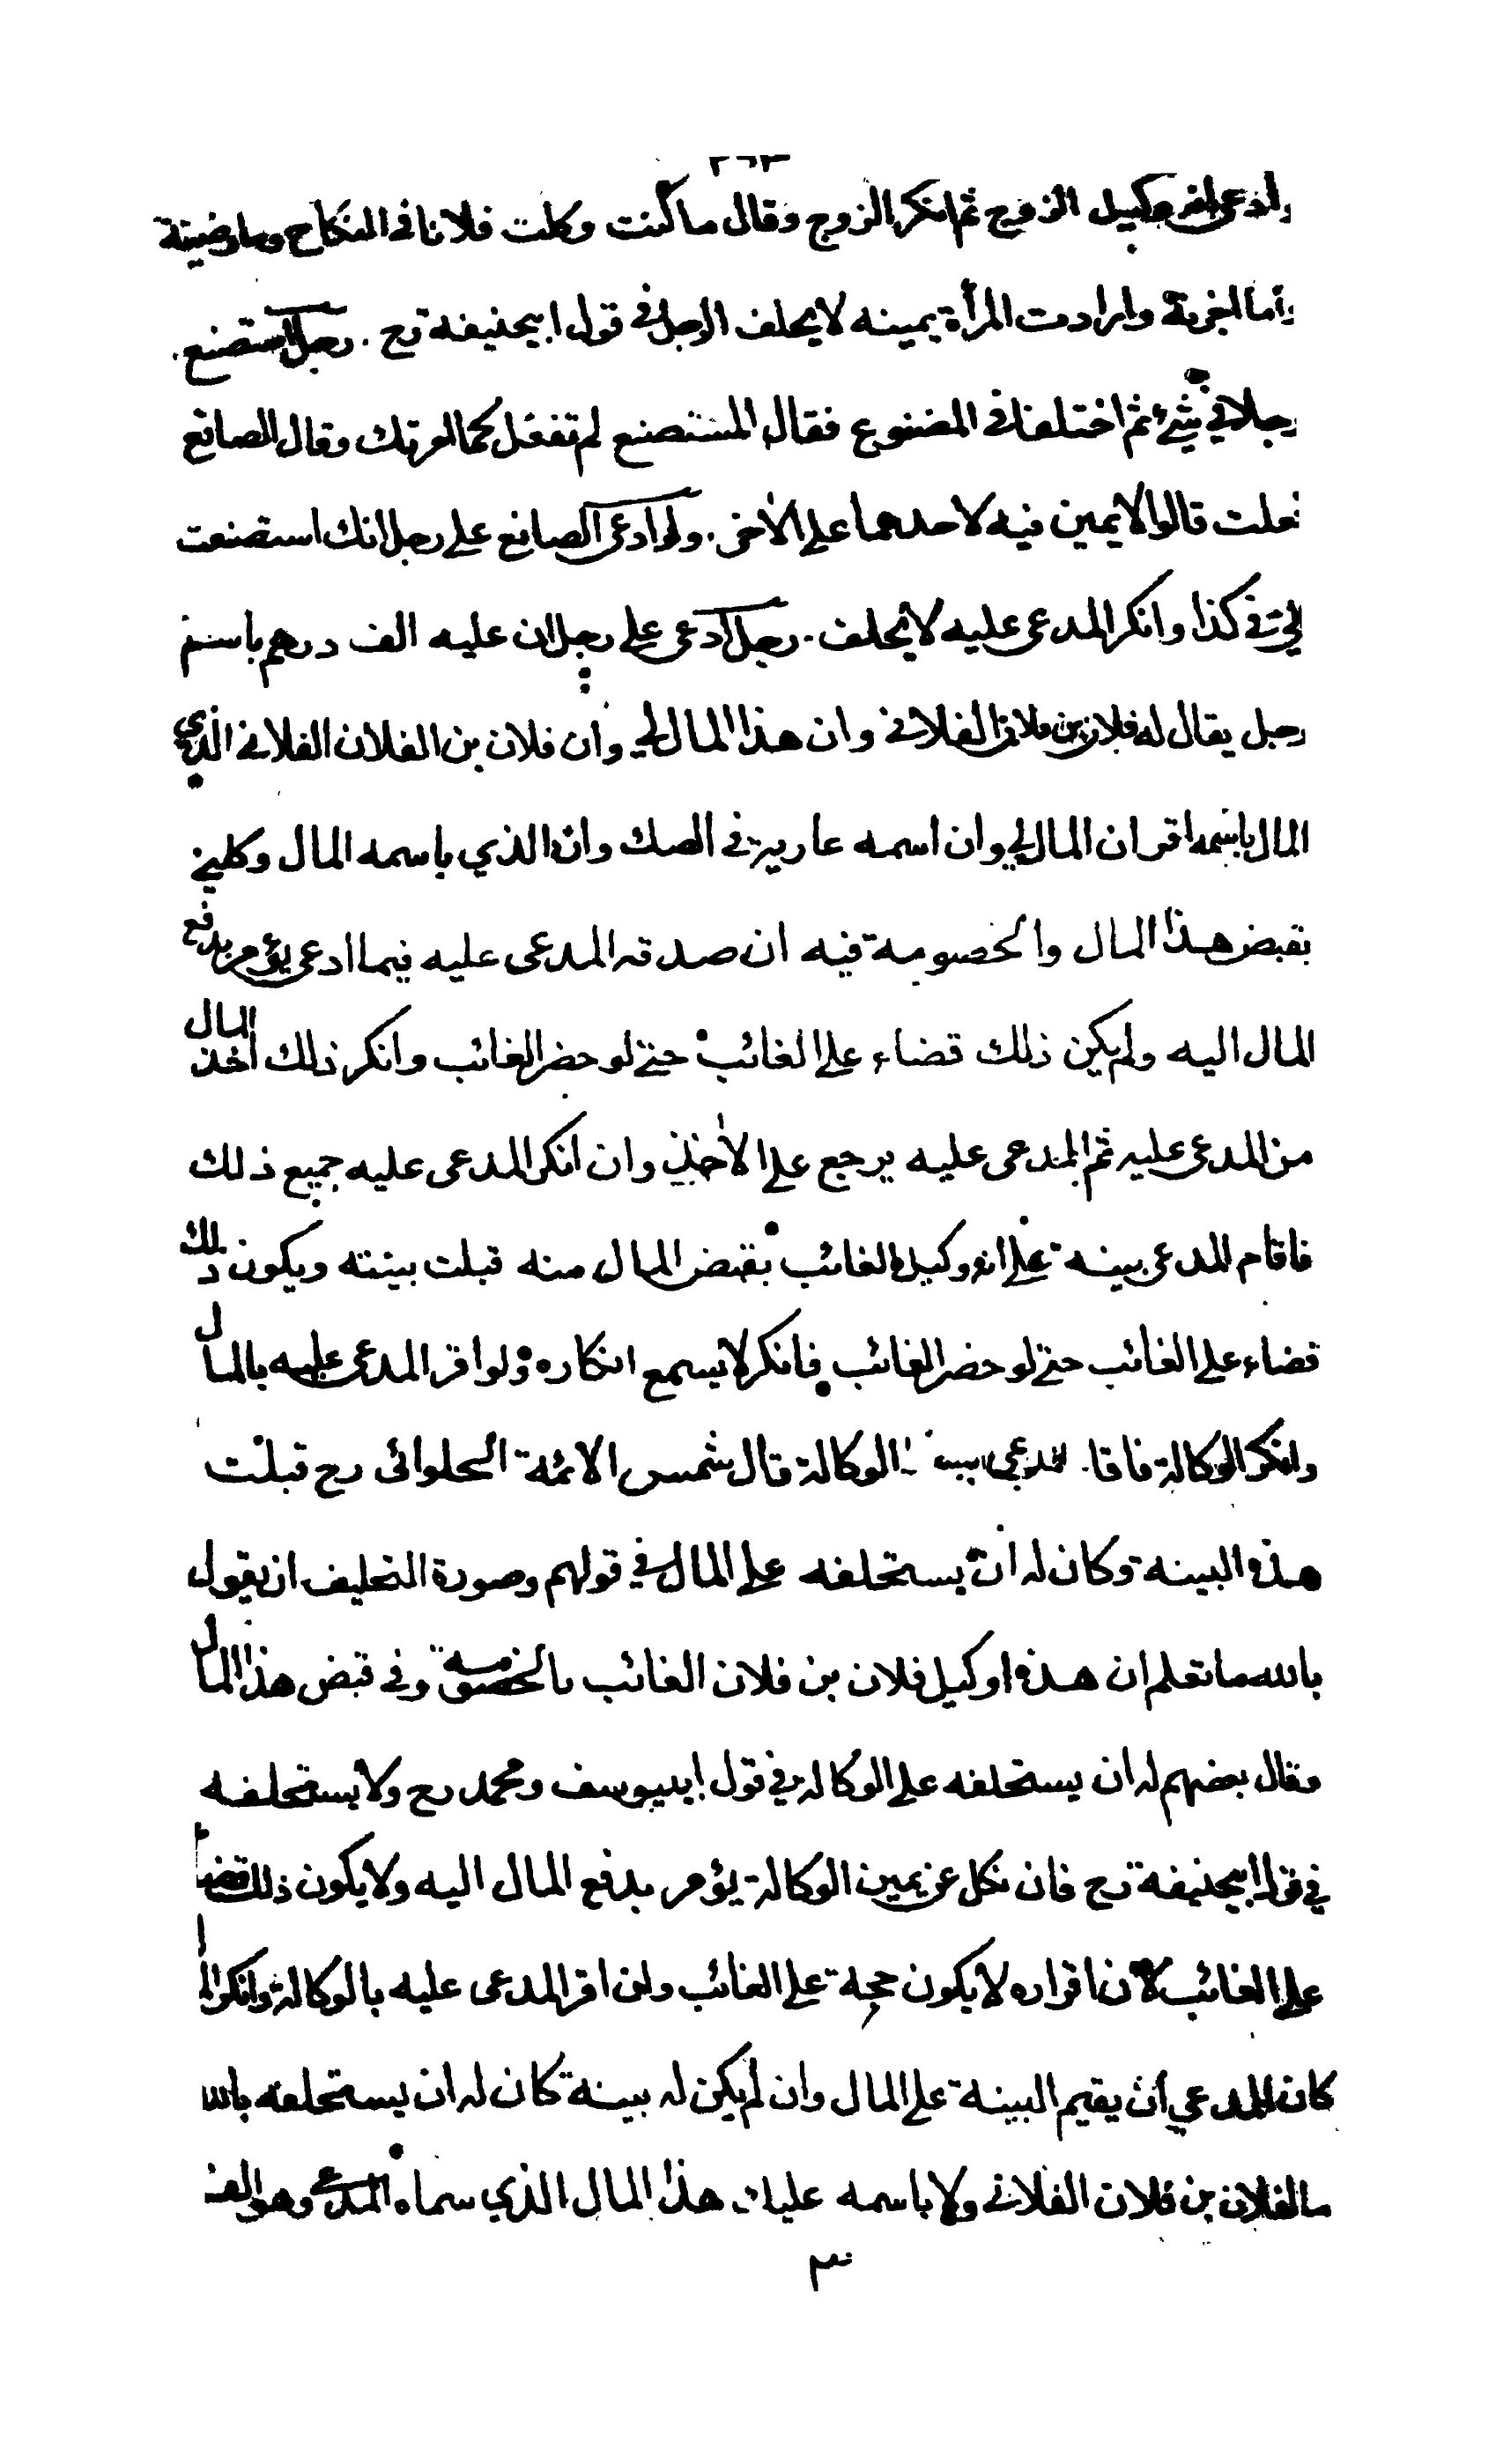 ٢٦٣
وادعى انه وكيل الزوج ثم انكر الزوج وقال ما كنت وكلت فلانا في النكاح وما رضيته
وارادت المرأة يمينه لا يحلف الرجل في قول ابيحنيفة رح . رجل استصنع
رجلا في شئ ثم اختلفا في المصنوع فقال المستصنع لم تفعل كما امرتك وقال الصانع
فعلت قالوا لا يمين فيه لاحدهما على الاخر . ولو ادعى الصانع على رجل انك استصنعت
الي في كذا وانكر المدعى عليه لا يحلف . رجل ادعى على رجل ان عليه الف درهم باسم
رجل يقال له فلان بن فلان الفلاني وان هذا المال لي وان فلان بن الفلان الفلاني الذي
المال باسمه اقر ان المال لي وان اسمه عارية في الصك وان الذي باسمه المال وكلني
بقبض هذا المال والخصومة فيه ان صدقه المدعى عليه فيما ادعى يؤمر بدفع
المال اليه ولم يكن ذلك قضاء على الغائب حتى لو حضر الغائب وانكر ذلك اخذ المال
من المدعى عليه ثم المدعى عليه يرجع على الاخذ وان انكر المدعى عليه جميع ذلك
فاقام المدعي بينة على انه وكيل الغائب بقبض المال منه قبلت بينته ويكون ذلك
قضاء على الغائب حتى لو حضر الغائب فانكر لا يسمع انكاره ولو اقر المدعى عليه بالمال
وانكر الوكالة فاقا المدعي بينة الوكالة قال شمس الائمة الحلوائى رح قبلت
هذه البينة وكان له ان يستحلفه على المال في قولهم وصورة التحليف ان يقول
بالله ما تعلم ان هذا وكيل فلان بن فلان الغائب بالخصومة وفي قبض هذا المال
وقال بعضهم له ان يستحلفه على الوكالة في قول ابي يوسف ومحمد رح ولا يستحلفه
في قول ابيحنيفة رح فان نكل عن يمين الوكالة يؤمر بدفع المال اليه ولا يكون ذلك قضاء
على الغائب لان اقراره لا يكون حجة على الغائب وان اقر المدعى عليه بالوكالة وانكر المال
كان للمدعي ان يقيم البينة على المال وان لم يكن له بينة كان له ان يستحلفه بالله
ما لفلان بن فلان الفلاني ولا باسمه عليك هذا المال الذي سماه المدعي وهو الف